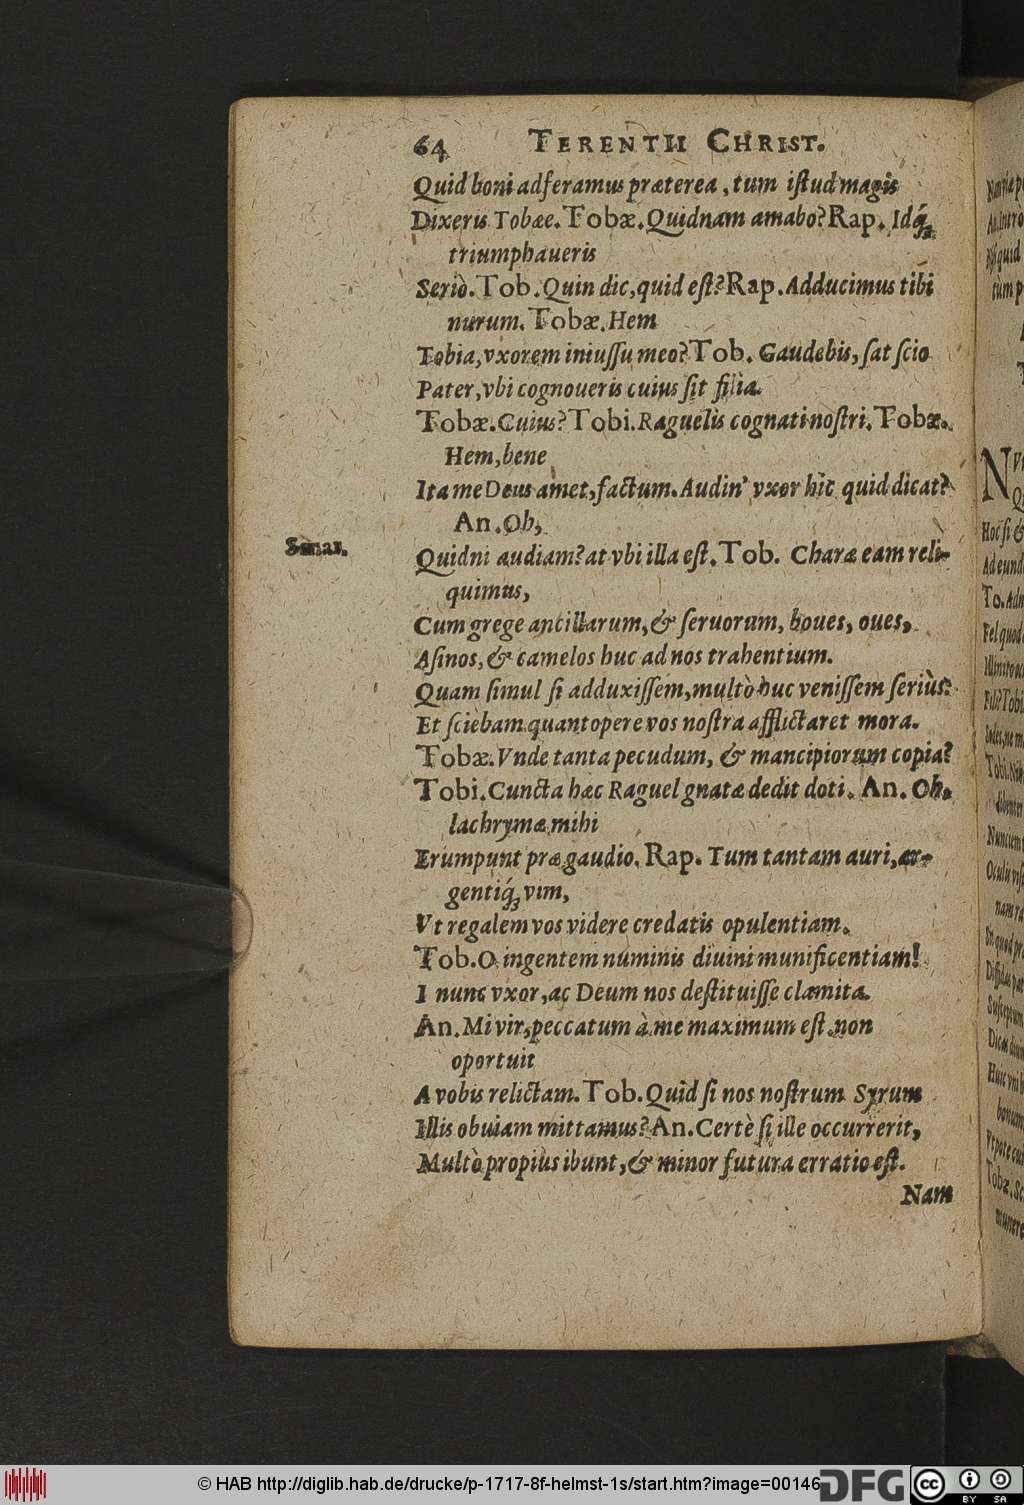 64 TERENTII CHRIST.
Quid boni adferamus præterea, tum istud magis
Dixeris Tobæe. Tobæ. Quidnam amabo? Rap. Idq́;
triumphaueris
Seriò. Tob. Quin dic, quid est? Rap. Adducimus tibi
nurum. Tobæ. Hem
Tobia, vxorem iniussu meo? Tob. Gaudebis, sat scio
Pater, vbi cognoueris cuius sit filia.
Tobæ. Cuius? Tobi. Raguelis cognati nostri. Tobæ.
Hem, bene
Ita me Deus amet, factum. Audin' vxor hic quid dicat?
An. Oh,
Senar.
Quidni audiam? at vbi illa est. Tob. Charæ eam reli-
quimus,
Cum grege ancillarum, & seruorum, boues, oues,
Asinos, & camelos huc ad nos trahentium.
Quam simul si adduxissem, multò huc venissem seriùs:
Et sciebam quantopere vos nostra afflictaret mora.
Tobæ. Vnde tanta pecudum, & mancipiorum copia?
Tobi. Cuncta hæc Raguel gnatæ dedit doti. An. Oh,
lachrymæ mihi
Erumpunt præ gaudio. Rap. Tum tantam auri, ar-
gentiq́; vim,
Vt regalem vos videre credatis opulentiam.
Tob. O ingentem numinis diuini munificentiam!
I nunc vxor, ac Deum nos destituisse clamita.
An. Mi vir, peccatum à me maximum est. non
oportuit
A vobis relictam. Tob. Quid si nos nostrum Syrum
Illis obuiam mittamus? An. Certè si ille occurrerit,
Multò propius ibunt, & minor futura erratio est.
Nam
© HAB http://diglib.hab.de/drucke/p-1717-8f-helmst-1s/start.htm?image=00146
DFG
cc BY SA